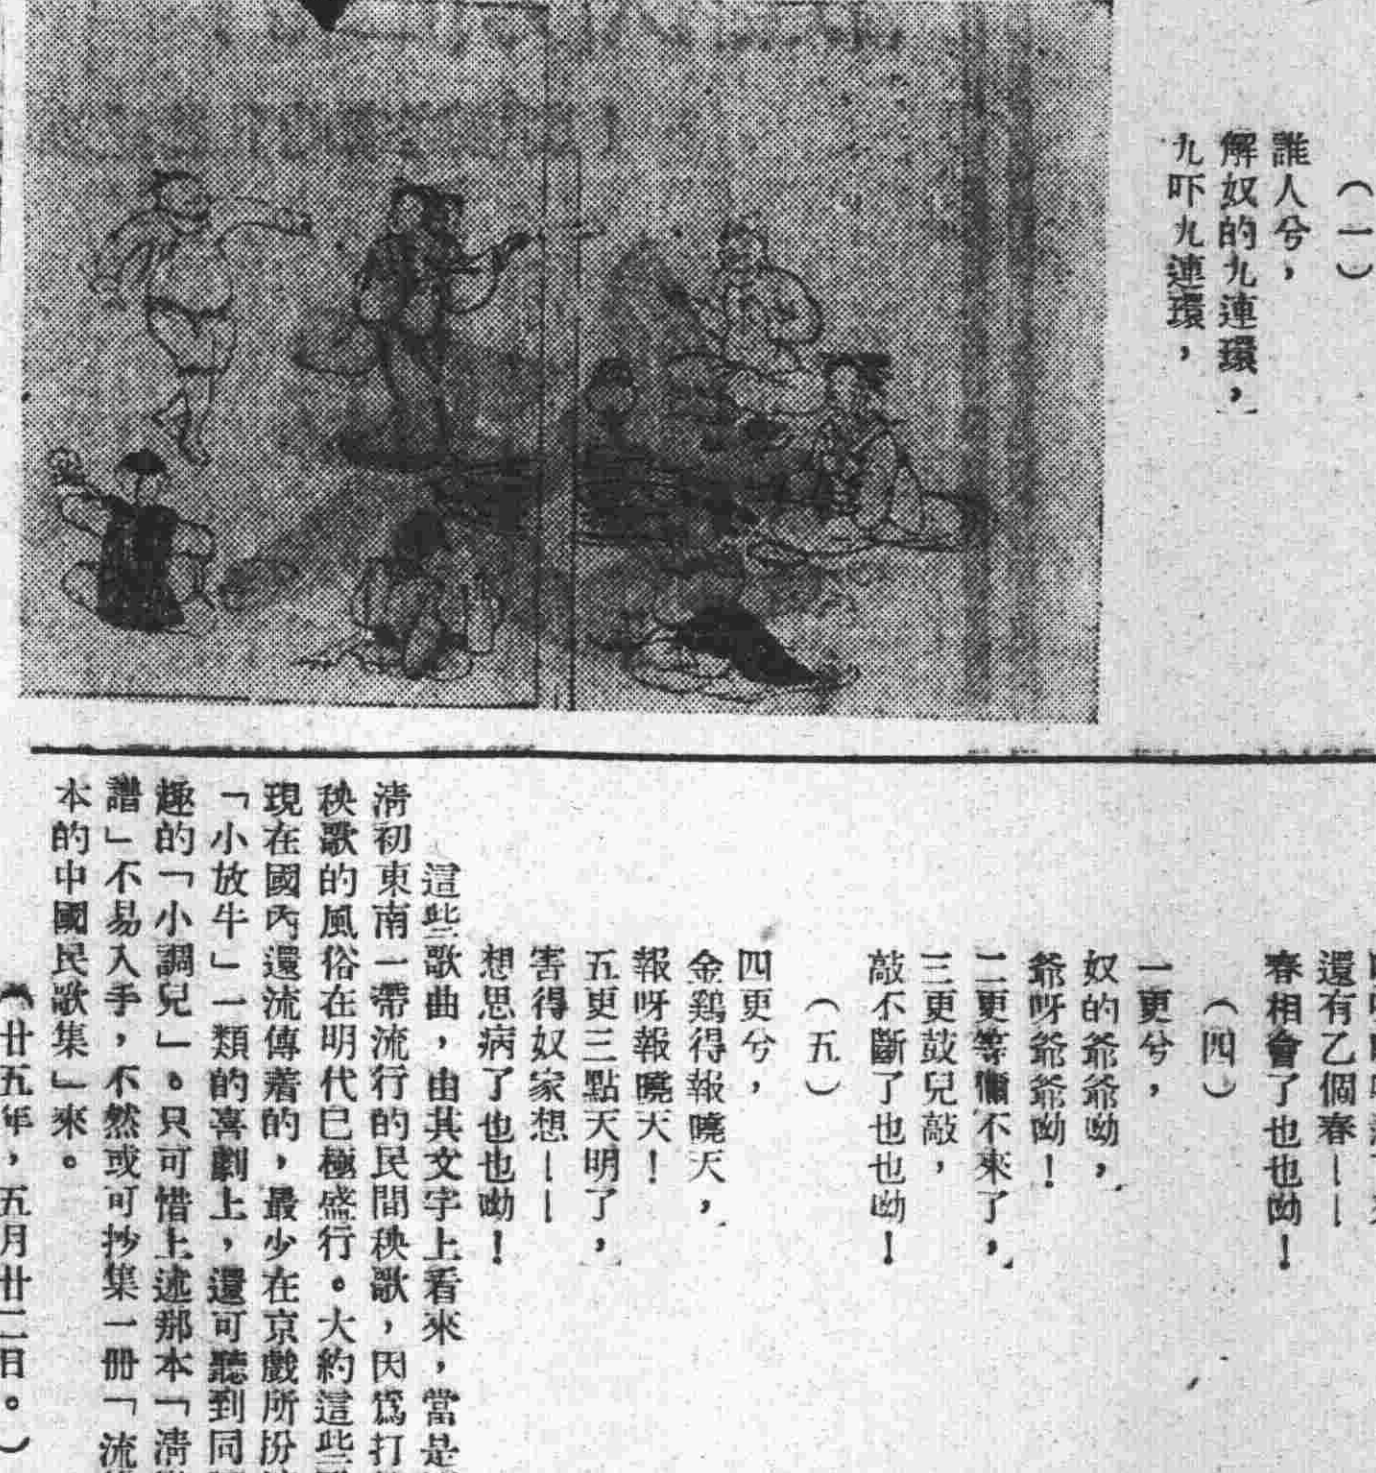 （一）
誰人兮，
解奴的九連環，
九吓九連環，
還有乙個春——
春相會了也也呦！
（四）
一更兮，
奴的爺爺呦，
爺呀爺爺呦！
二更等儞不來了，
三更鼓兒敲，
敲不斷了也也呦！
（五）
四更兮，
金鷄得報曉天，
報呀報曉天！
五更三點天明了，
害得奴家想——
想思病了也也呦！
這些歌曲，由其文字上看來，當是
淸初東南一帶流行的民間秧歌，因爲打
秧歌的風俗在明代已極盛行。大約這些
現在國內還流傳着的，最少在京戲所扮
「小放牛」一類的喜劇上，還可聽到同
趣的「小調兒」。只可惜上述那本「淸
譜」不易入手，不然或可抄集一册「流
本的中國民歌集」來。
（廿五年，五月廿二日。）